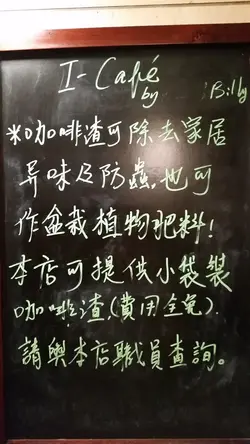 I-Café
by :Billy
*咖啡渣可除去家居
异味及防蟲,也可
作盆栽植物肥料!
本店可提供小袋裝
咖啡渣(費用全免).
請與本店職員查詢。